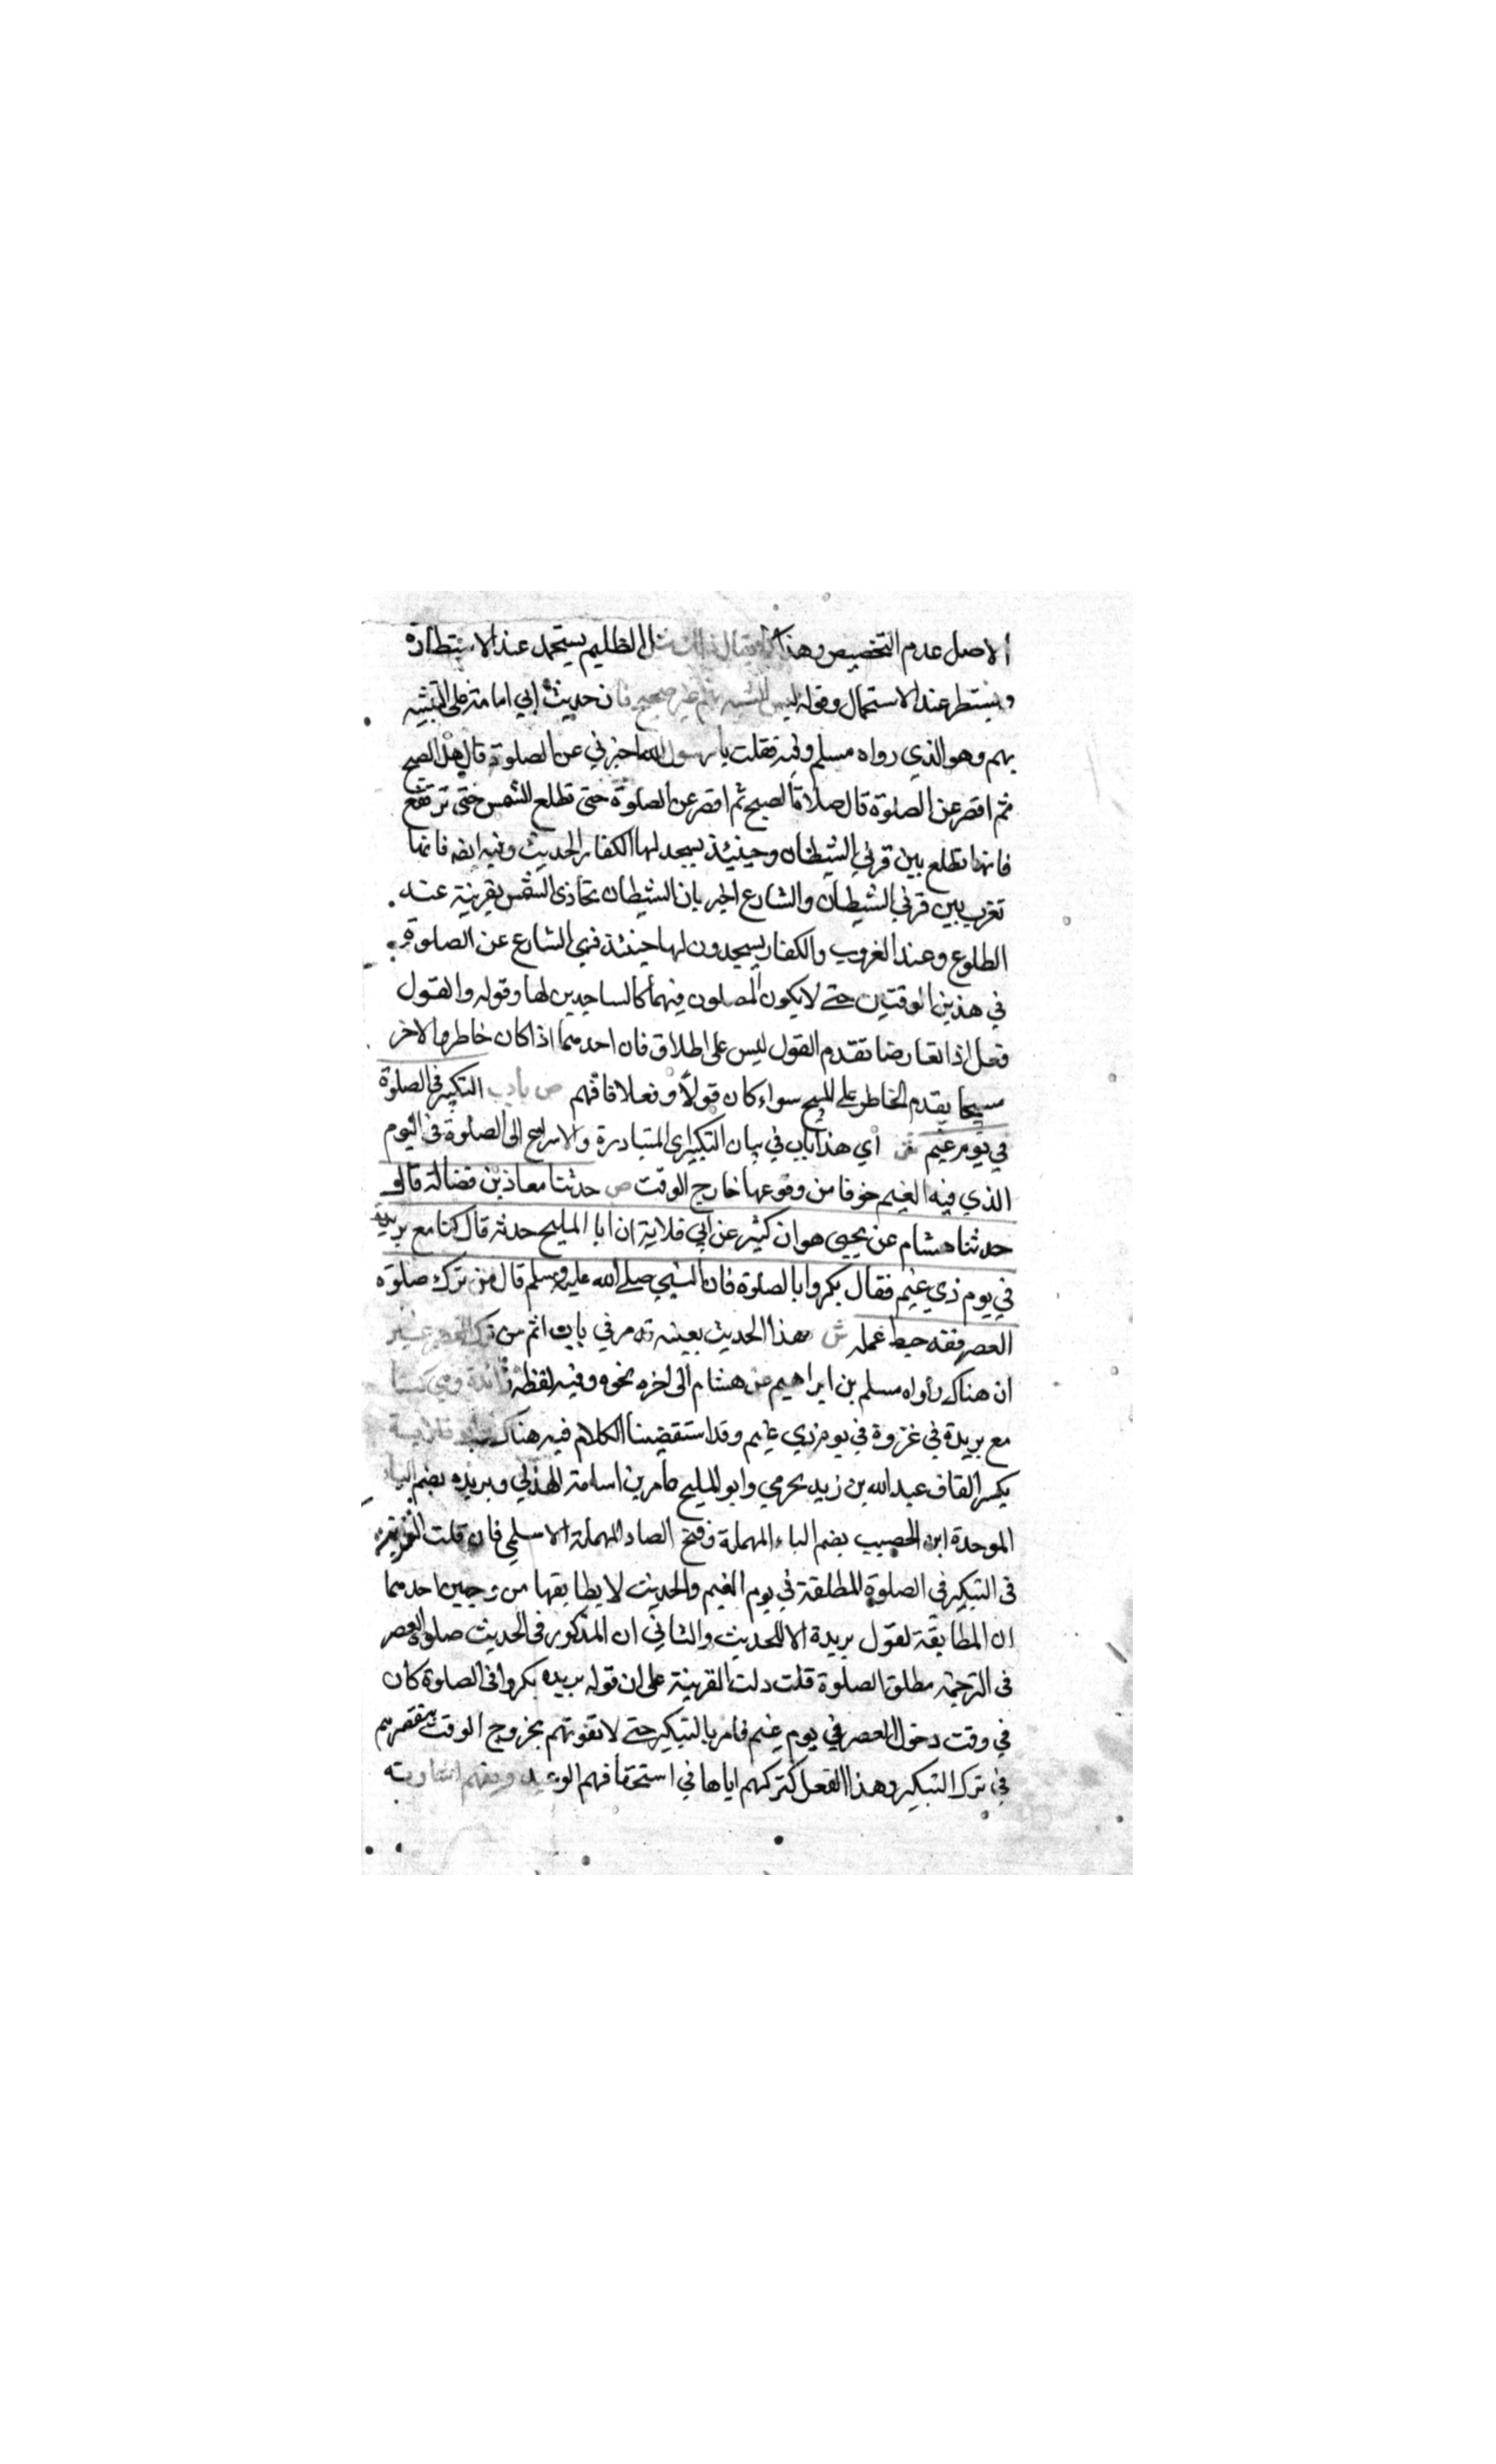 الاصل عدم التخصيص وهذا كما يقال ان مثل الظليم يستحمل عند الاستطارة
ويستطير عند الاستحمال وقوله ليس للتشبه بهم غير صحيح فان حديث ابي امامة على التشبه
بهم وهو الذي رواه مسلم وفيه فقلت يا رسول الله اخبرني عن الصلوة قال صل الصبح
ثم اقصر عن الصلوة قال صلاة الصبح ثم اقصر عن الصلوة حتى تطلع الشمس حتى ترتفع
فانها تطلع بين قرني الشيطان وحينئذ يسجد لها الكفار الحديث وفيه ايضا فانها
تغرب بين قرني الشيطان والشارع اخبر بان الشيطان يحاذي الشمس بقرنيه عند
الطلوع وعند الغروب والكفار يسجدون لها حينئذ فنهى الشارع عن الصلوة
في هذين الوقتين حتى لا يكون المصلون فيهما كالساجدين لها وقوله والقول
فعل اذا تعارضا تقدم القول ليس على اطلاق فان احدهما اذا كان خاطرا والاخر
مبيحا يقدم الخاطر على المبيح سواء كان قولا او فعلا فافهم ص باب التبكير في الصلوة
في يوم غيم ش اي هذا باب في بيان التبكير اي المبادرة والاسراع الى الصلوة في اليوم
الذي فيه الغيم خوفا من وقوعها خارج الوقت ص حدثنا معاذ بن فضالة قال
حدثنا هشام عن يحيى هو ابن كثير عن ابي قلابة ان ابا المليح حدثه قال كنا مع بريدة
في يوم ذي غيم فقال بكروا بالصلوة فان النبي صلى الله عليه وسلم قال من ترك صلوة
العصر فقد حبط عمله ش هذا الحديث بعينه قد مر في باب اثم من ترك العصر غير
ان هناك رواه مسلم بن ابراهيم عن هشام الى اخره نحوه وفيه لفظة زائدة وهي كنا
مع بريدة في غزوة في يوم ذي غيم وقد استقضينا الكلام فيه هناك وابو قلابة
بكسر القاف عبد الله بن زيد الجرمي وابو المليح عامر بن اسامة الهذلي وبريدة بضم الباء
الموحدة ابن الحصيب بضم الباء المهملة وفتح الصاد المهملة الاسلمي فان قلت الترجمة
في التبكير في الصلوة المطلقة في يوم الغيم والحديث لا يطابقها من وجهين احدهما
ان المطابقة لقول بريدة لا للحديث والثاني ان المذكور في الحديث صلوة العصر
في الترجمة مطلق الصلوة قلت دلت القرينة على ان قوله بريده بكروا في الصلوة كان
في وقت دخول العصر في يوم غيم فامر بالتبكير حتى لا تفوتهم بخروج الوقت بتقصيرهم
في ترك التبكير وهذا الفعل كتركهم اياها في استحقاقهم الوعيد ويفهم اشارته